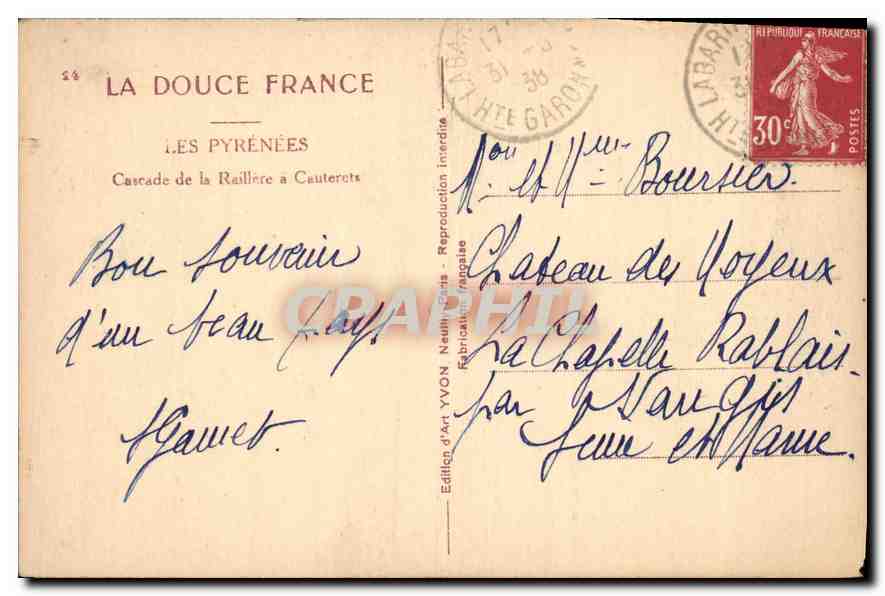 24
LA DOUCE FRANCE
LES PYRÉNÉES
Cascade de la Raillère à Cauterets
Bon souvenir
d'un beau pays
Edition d'Art YVON Neuilly-Paris - Reproduction interdite
Fabrication française
17
31 38
LABAR
HTE GARONNE
LABAR
RÉPUBLIQUE FRANÇAISE
30c
POSTES
Mon et Mme Boursier.
Chateau des Moyeux
La Chapelle Rablais
par Nangis
Seine et Marne.
CRAPHIL